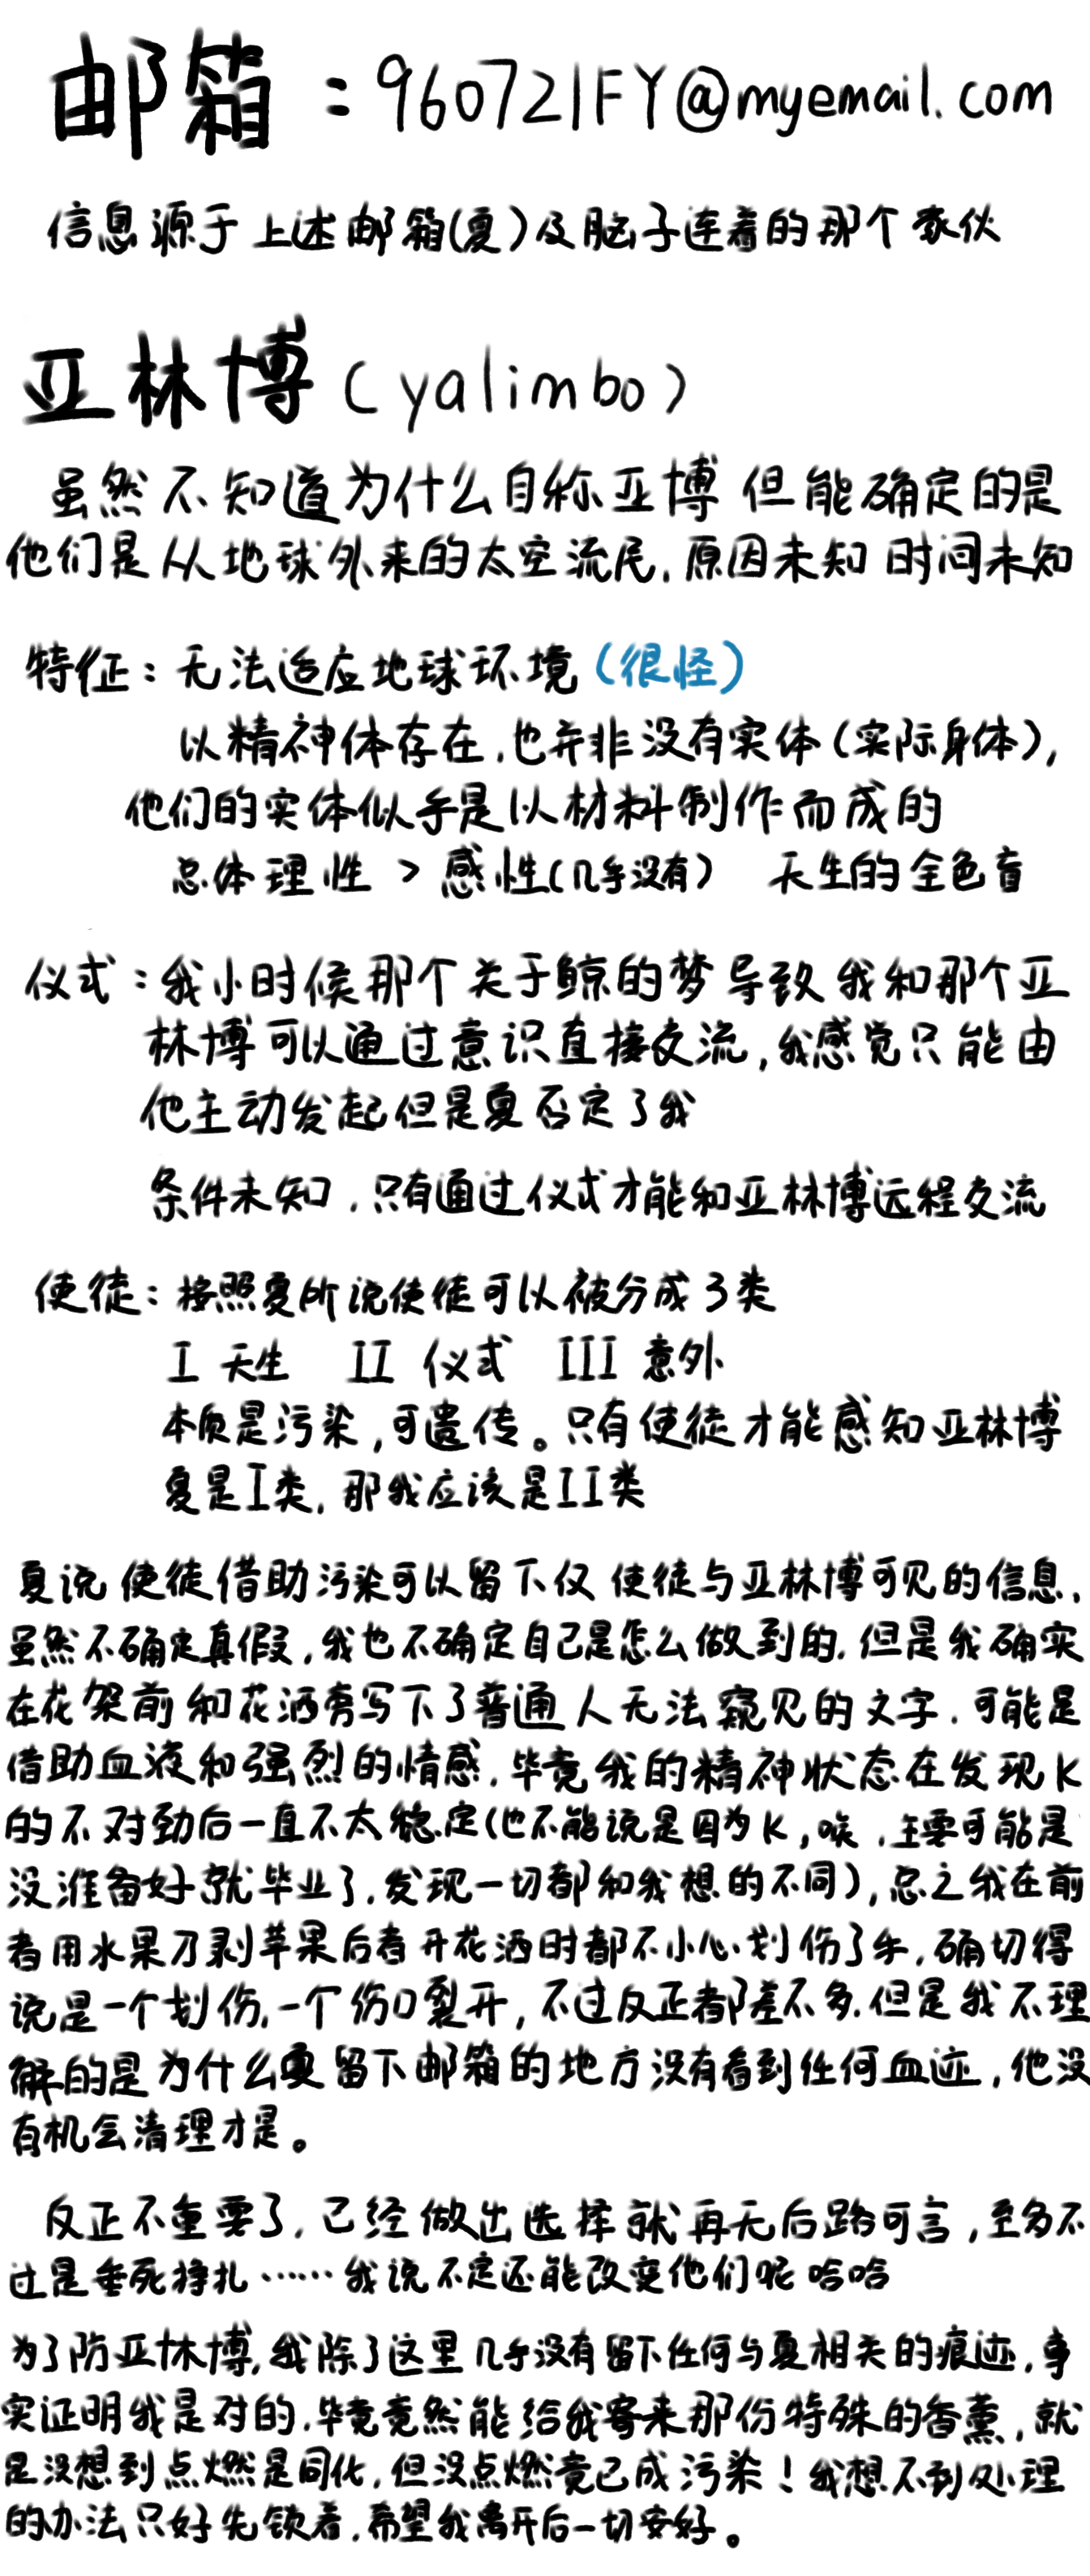 邮箱：960721FY@myemail.com
信息源于上述邮箱(夏)及脑子连着的那个家伙
亚林博(yalimbo)
虽然不知道为什么自称亚博 但能确定的是
他们是从地球外来的太空流民,原因未知 时间未知
特征：无法适应地球环境(很怪)
以精神体存在,也并非没有实体(实际身体),
他们的实体似乎是以材料制作而成的
总体理性 > 感性(几乎没有) 天生的全色盲
仪式：我小时候那个关于鲸的梦导致我和那个亚
林博可以通过意识直接交流,我感觉只能由
他主动发起但是夏否定了我
条件未知,只有通过仪式才能和亚林博远程交流
使徒：按照夏所说使徒可以被分成3类
I 天生 II 仪式 III 意外
本质是污染,可遗传。只有使徒才能感知亚林博
夏是I类,那我应该是II类
夏说使徒借助污染可以留下仅使徒与亚林博可见的信息,
虽然不确定真假,我也不确定自己是怎么做到的,但是我确实
在花架前和花洒旁写下了普通人无法窥见的文字,可能是
借助血液和强烈的情感,毕竟我的精神状态在发现K
的不对劲后一直不太稳定(也不能说是因为K,唉,主要可能是
没准备好就毕业了,发现一切都和我想的不同),总之我在前
者用水果刀剥苹果后者开花洒时都不小心划伤了手,确切得
说是一个划伤,一个伤口裂开,不过反正都差不多,但是我不理
解的是为什么夏留下邮箱的地方没有看到任何血迹,他没
有机会清理才是。
反正不重要了,已经做出选择就再无后路可言,至多不
过是垂死挣扎……我说不定还能改变他们呢哈哈
为了防亚林博,我除了这里几乎没有留下任何与夏相关的痕迹,事
实证明我是对的,毕竟竟然能给我寄来那份特殊的香薰,就
是没想到点燃是同化,但没点燃竟已成污染！我想不到处理
的办法只好先锁着,希望我离开后一切安好。